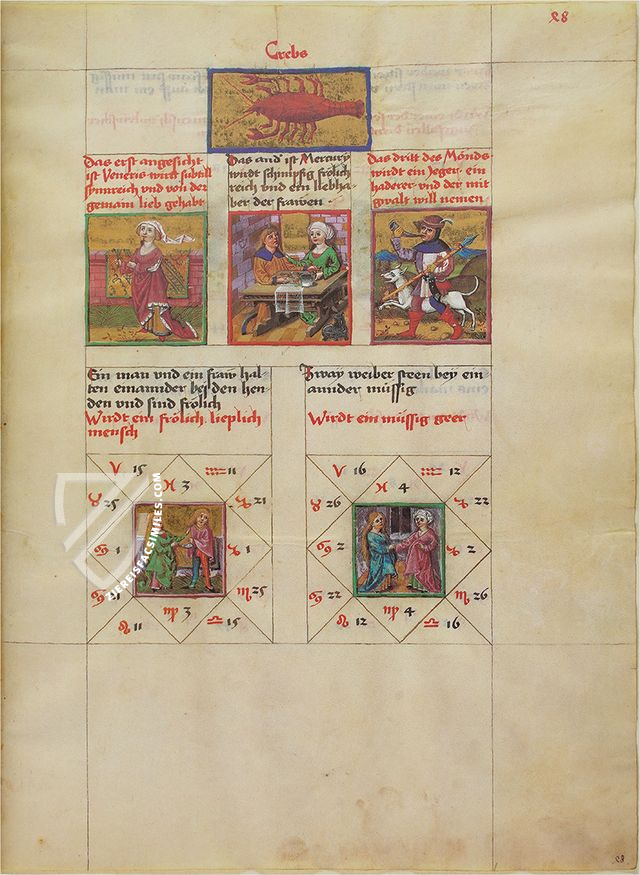 28
Crebs
Das erst angesicht
ist Veneris wirt subtill
synnreich und von der
gemain lieb gehabt
Das and ist Mercury
wirdt schimpfig frölich
reich und ein liebha
ber der frawen
Das dritt des Monds
wirdt ein Jeger ein
haderer und der mit
gwalt will nemen
Ein man und ein fraw hal
ten einannder bei den hen
den und sind frölich
Wirdt ein frölich lieplich
mensch
Zway weiber steen bey ein
annder müssig
Wirdt ein müssig geer
♈ 15 ♒ 11
♓ 3
♉ 25 ♑ 21
♋ 1 ♑ 1
♋ ♏ 25
♍ 3
♌ 11 ♎ 15
♈ 16 ♒ 12
♓ 4
♉ 26 ♑ 22
♋ 2 ♑ 2
♋ 22 ♏ 26
♍ 4
♌ 12 ♎ 16
ZIEREISFACSIMILES.COM
28